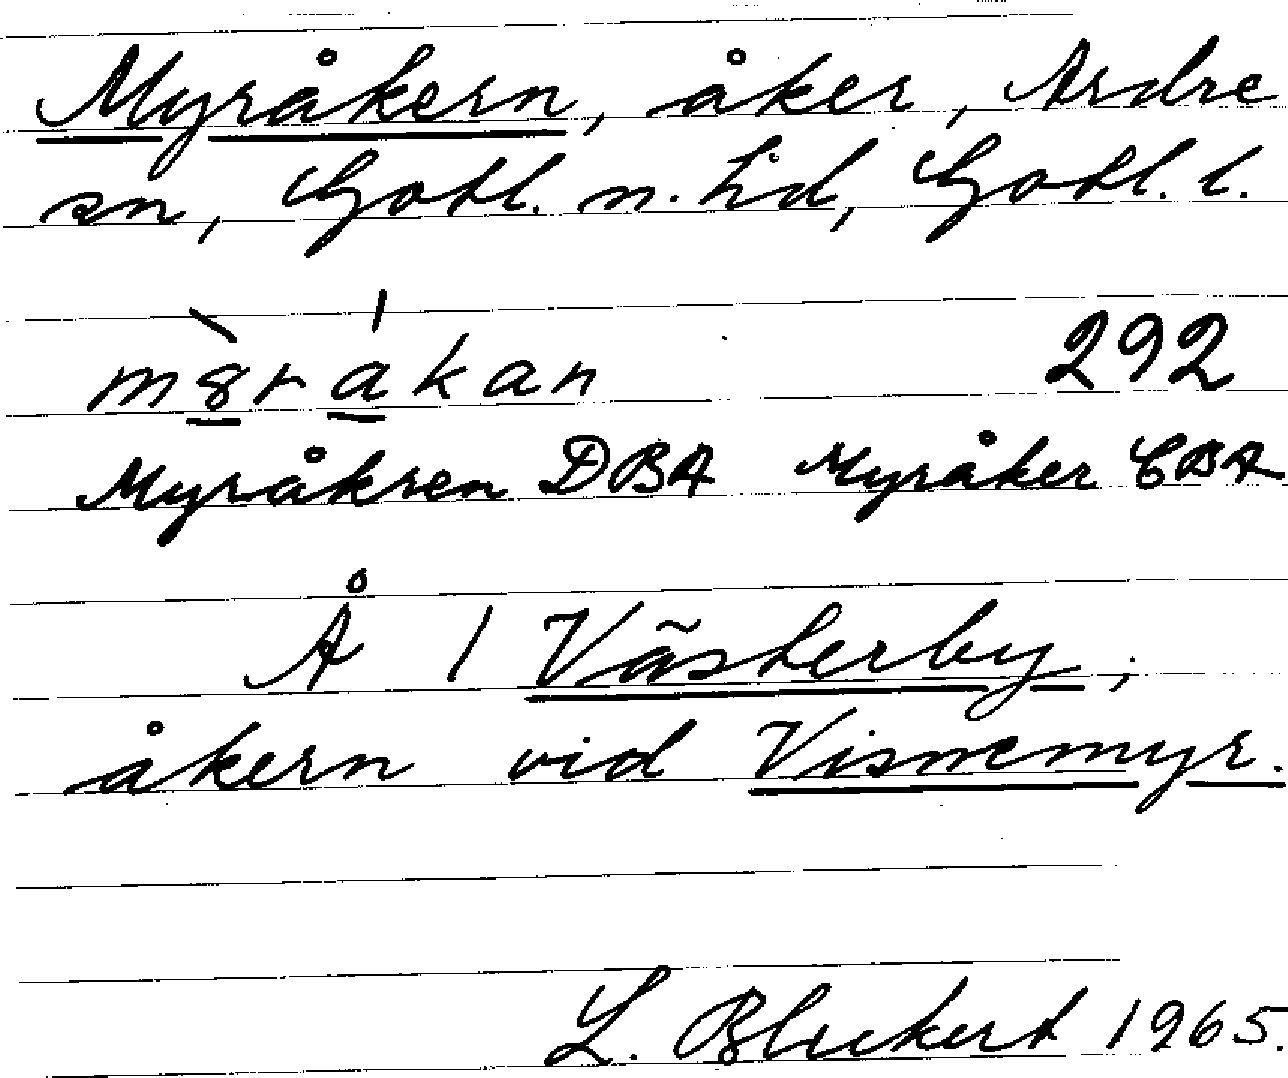 Myråkern, åker, Ardre
sn, Gotl. n. hd, Gotl. l.
m8̲̀rá̲kan 292
Myråkren DBA Myråker CBA
Å 1 Västerby,
åkern vid Visnemyr.
L. Blickert 1965.